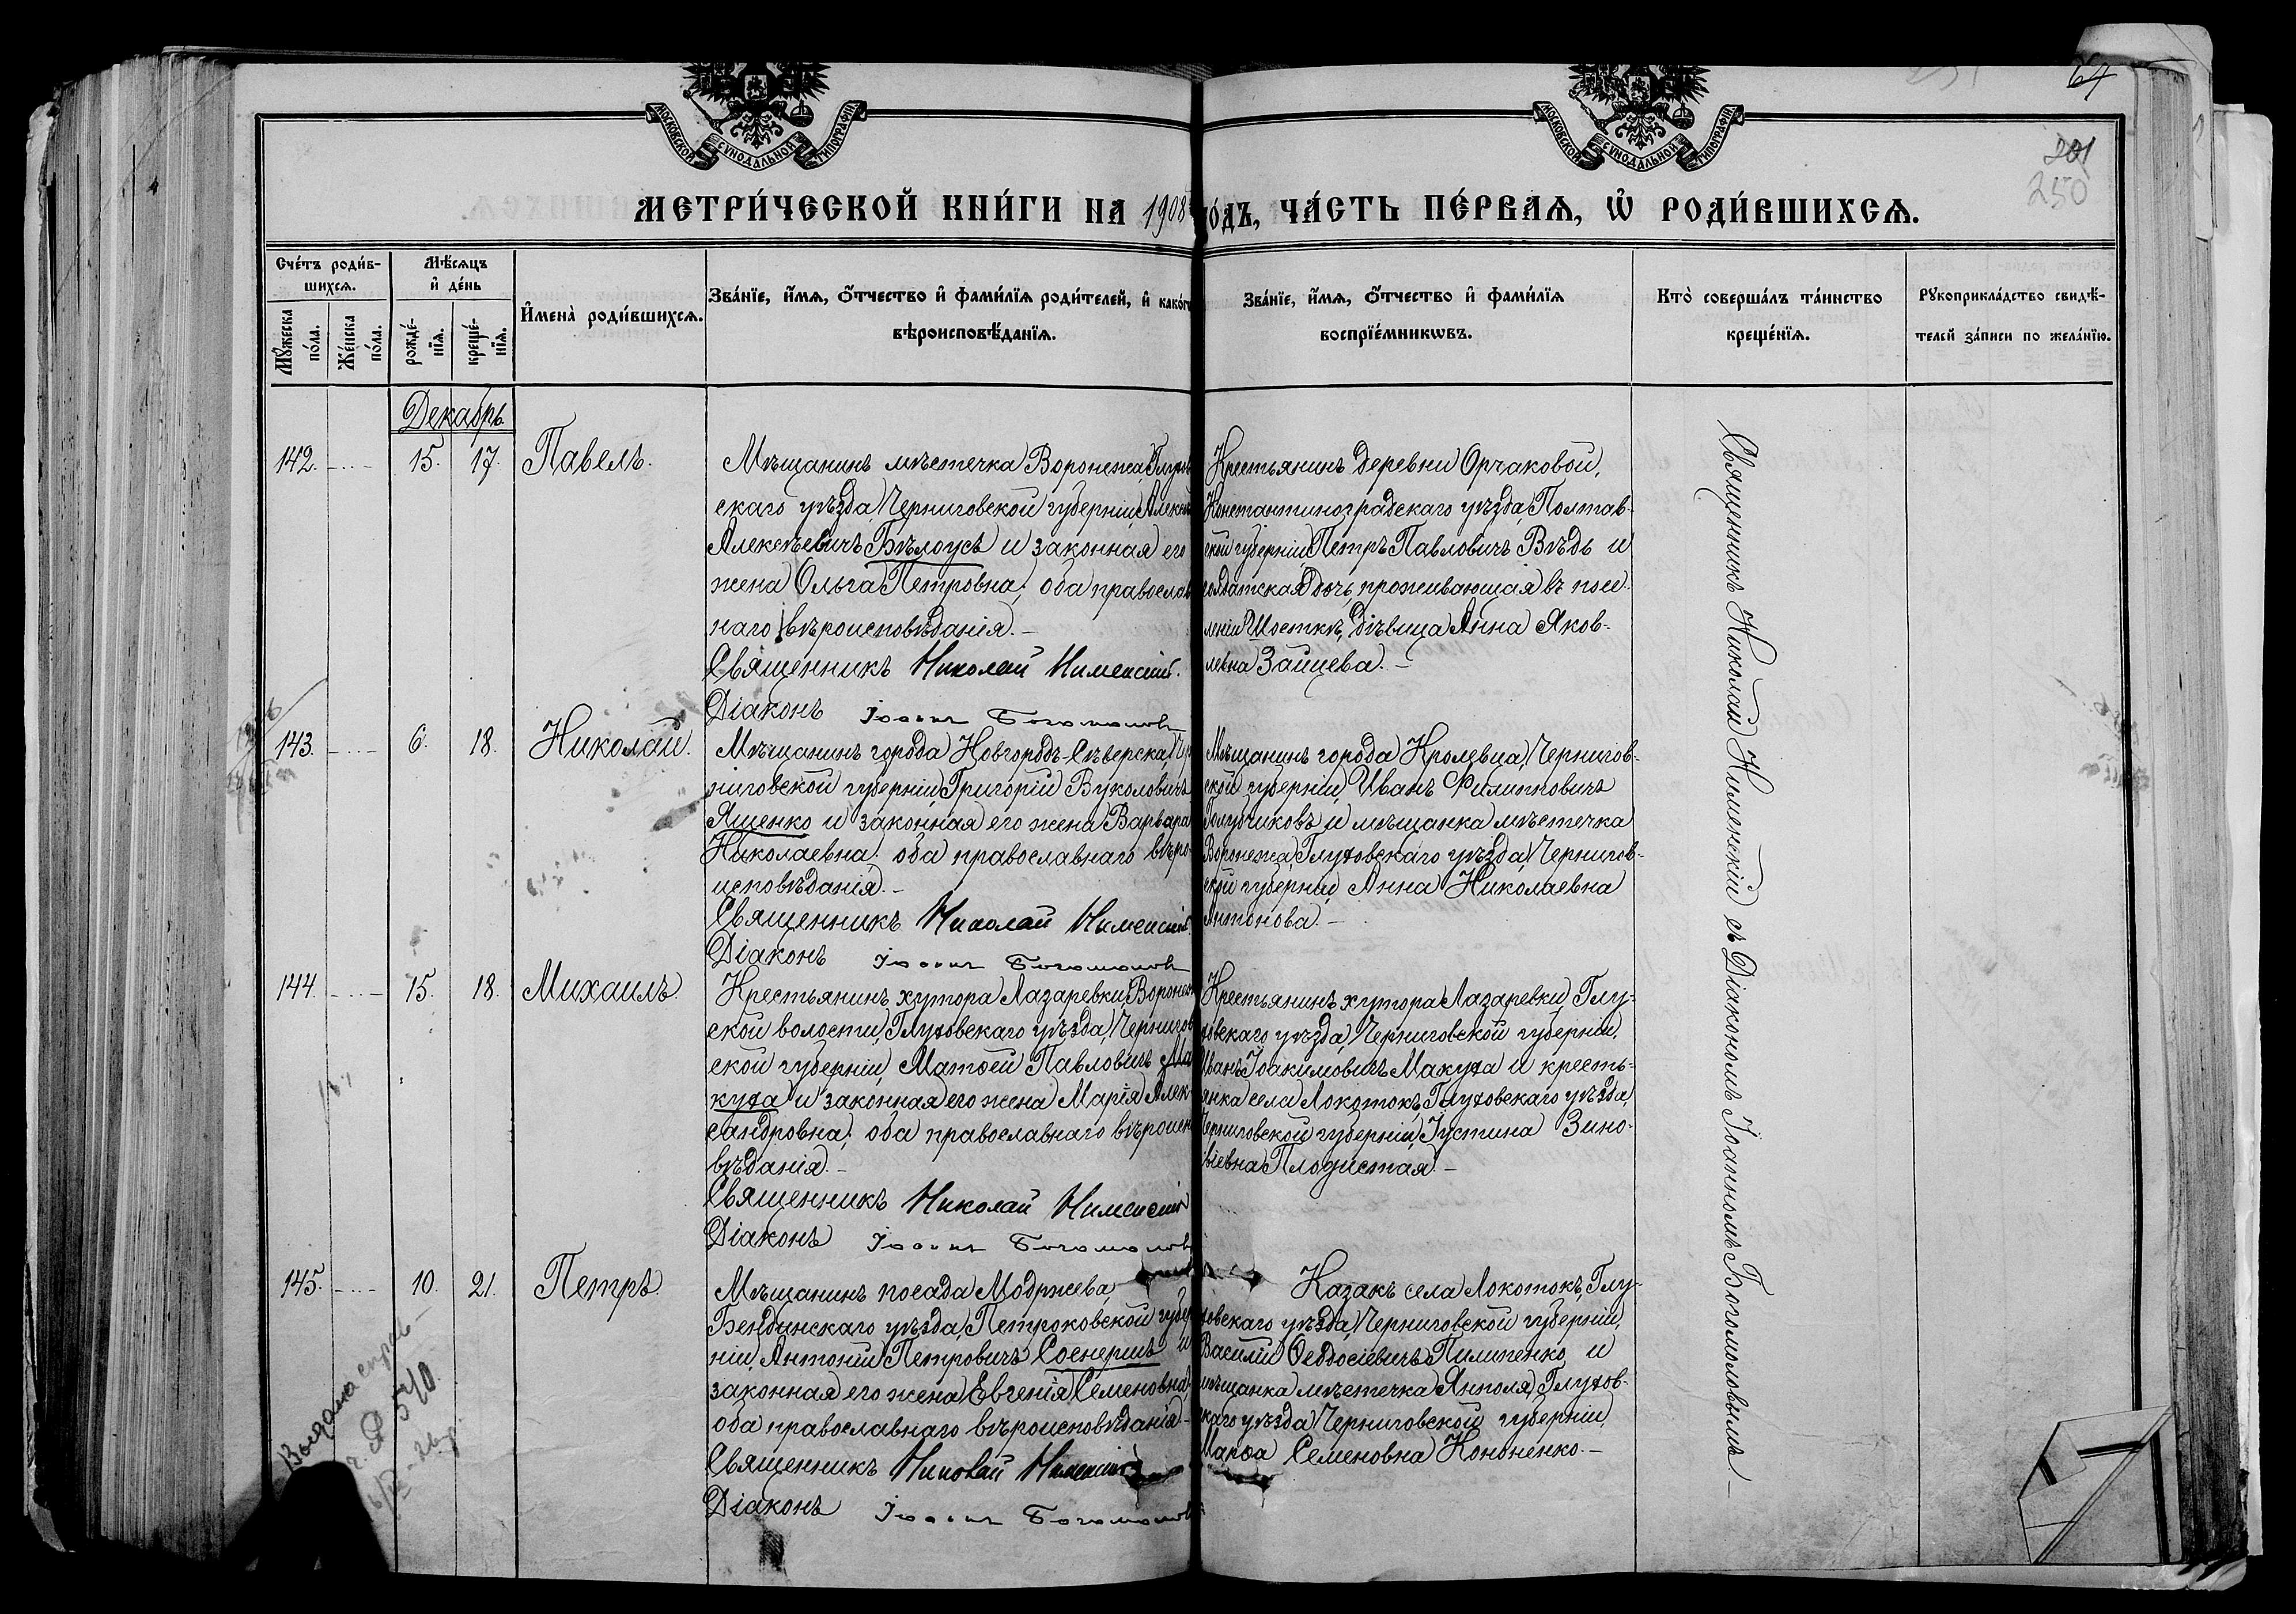 64
201
250
МОСКОВСКОЙ СѴНОДАЛЬНОЙ ТИПОГРАФІИ
МОСКОВСКОЙ СѴНОДАЛЬНОЙ ТИПОГРАФІИ
МЕТРИ́ЧЕСКОЙ КНИ́ГИ НА 1908 го́дъ, ЧА́СТЬ ПЕ́РВАѦ, Ѽ РОДИ́ВШИХСѦ.
Сче́тъ роди́в-
шихсѧ.
Мꙋ́жеска по́ла.
Же́нска по́ла.
Мѣ́сѧцъ
и҆ де́нь
рожде́-
нїѧ.
креще́-
нїѧ.
И҆мена̀ роди́вшихсѧ.
Зва́нїе, и҆́мѧ, ѻ҆́тчество и҆ фами́лїѧ роди́телей, и҆ како́гѡ
вѣроисповѣ́данїѧ.
Зва́нїе, и҆́мѧ, ѻ҆́тчество и҆ фами́лїѧ
воспрїе́мникѡвъ.
Кто̀ соверша́лъ та́инство
креще́нїѧ.
Рꙋкоприкла́дство свидѣ́-
телей за́писи по жела́нїю.
Декабрь
142. 15. 17. Павелъ.
Мѣщанинъ мѣстечка Воронежа, Глухов
скаго уѣзда, Черниговской губерніи, Алексѣй
Алексѣевичъ Бѣлоусъ и законная его
жена Ольга Петровна; оба православ
наго вѣроисповѣданія. –
Священникъ Николай Нименскій.
Діаконъ Іоаннъ Богомоловъ
Крестьянинъ деревни Орчаковой,
Константиноградскаго уѣзда, Полтав-
ской губерніи, Петръ Павловичъ Вѣдь и
солдатская дочь, проживающая въ посе-
леніи Шосткѣ, дѣвица Анна Яков-
левна Зайцева. –
143. 6. 18. Николай.
Мѣщанинъ города Новгородъ-Сѣверска, Чер
ниговской губерніи, Григорій Вуколовичъ
Ященко и законная его жена Варвара
Николаевна; оба православнаго вѣро-
исповѣданія. –
Священникъ Николай Нименскій.
Діаконъ Іоаннъ Богомоловъ
Мѣщанинъ города Кролевца, Чернигов-
ской губерніи, Иванъ Филипповичъ
Голубчиковъ и мѣщанка мѣстечка
Воронежа, Глуховскаго уѣзда, Чернигов-
ской губерніи, Анна Николаевна
Антонова. –
144. 15. 18. Михаилъ.
Крестьянинъ хутора Лазаревки, Воронеж
ской волости, Глуховскаго уѣзда, Чернигов
ской губерніи, Матѳей Павловичъ Ма
куха и законная его жена Марія Алек-
сандровна; оба православнаго вѣроиспо
вѣданія. –
Священникъ Николай Нименскій
Діаконъ Іоаннъ Богомоловъ
Крестьянинъ хутора Лазаревки, Глу-
ховскаго уѣзда, Черниговской губерніи,
Иванъ Іоакимовичъ Макуха и кресть-
янка села Локотокъ, Глуховскаго уѣзда,
Черниговской губерніи, Іустина Зино-
віевна Плохистая. –
145. 10. 21. Петръ.
Мѣщанинъ посада Модржева,
Бендинскаго уѣзда, Петроковской губер
ніи, Антоній Петровичъ Соснержъ и
законная его жена Евгенія Семеновна;
оба православнаго вѣроисповѣданія. –
Священникъ Николай Нименскій
Діаконъ Іоаннъ Богомоловъ
Казакъ села Локотокъ, Глу-
ховскаго уѣзда, Черниговской губерніи,
Василій Ѳеодосіевичъ Пилипенко и
мѣщанка мѣстечка Янполя, Глухов-
скаго уѣзда, Черниговской губерніи,
Марѳа Семеновна Кононенко. –
Священникъ Николай Нименскій съ Діакономъ Іоанномъ Богомоловымъ. –
Выдана
540